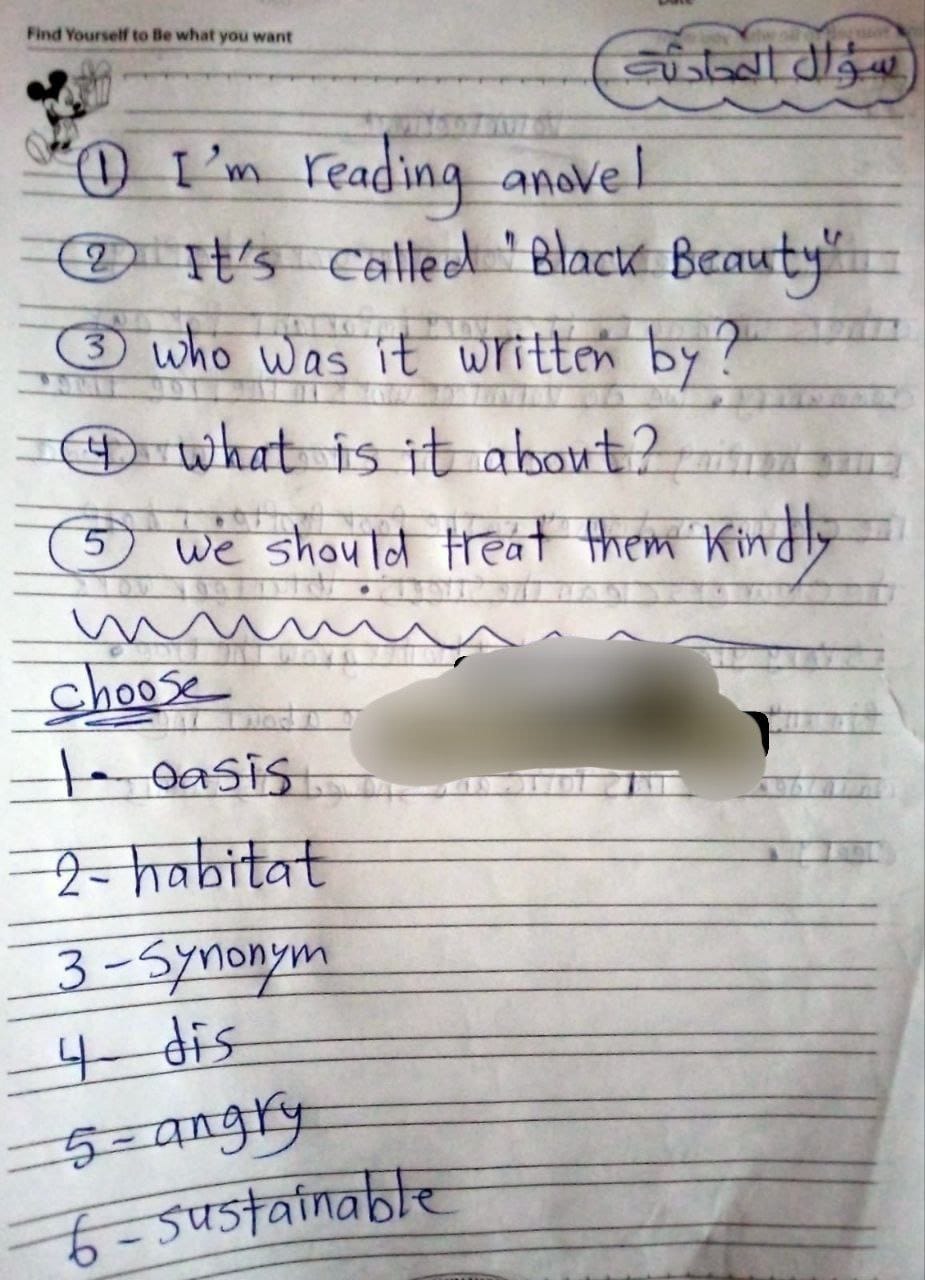 Find Yourself to Be what you want
سؤال المحادثة
① I'm reading anovel
② It's called "Black Beauty"
③ who was it written by?
④ what is it about?
⑤ we should treat them kindly.
choose
1- oasis
2- habitat
3- synonym
4- dis
5- angry
6- sustainable